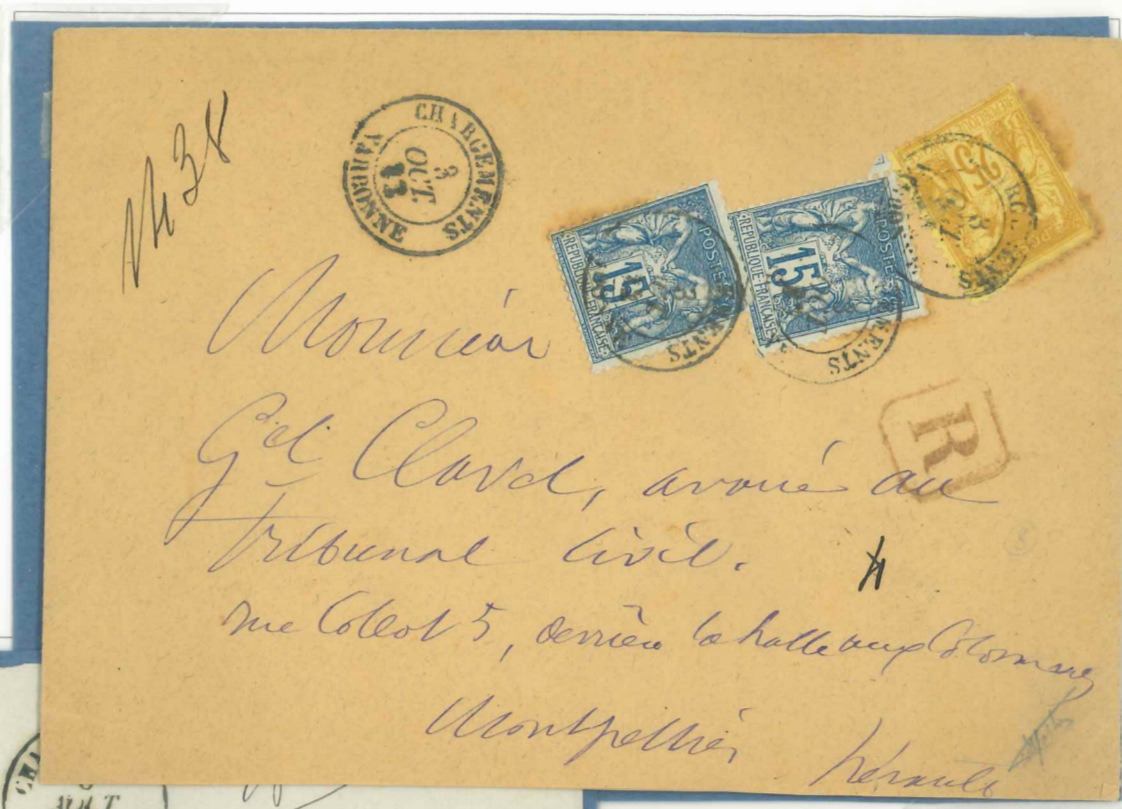 N 438
CHARGEMENTS
3
OCT.
83
NARBONNE
25
POSTES
15
REPUBLIQUE FRANÇAISE
POSTES
15
REPUBLIQUE FRANÇAISE
R
Monsieur
Gel Clavel, avoué au
tribunal Civil.
4
rue Collot 5, derrière la halle aux Colonnes
Montpellier
Hérault
AOUT